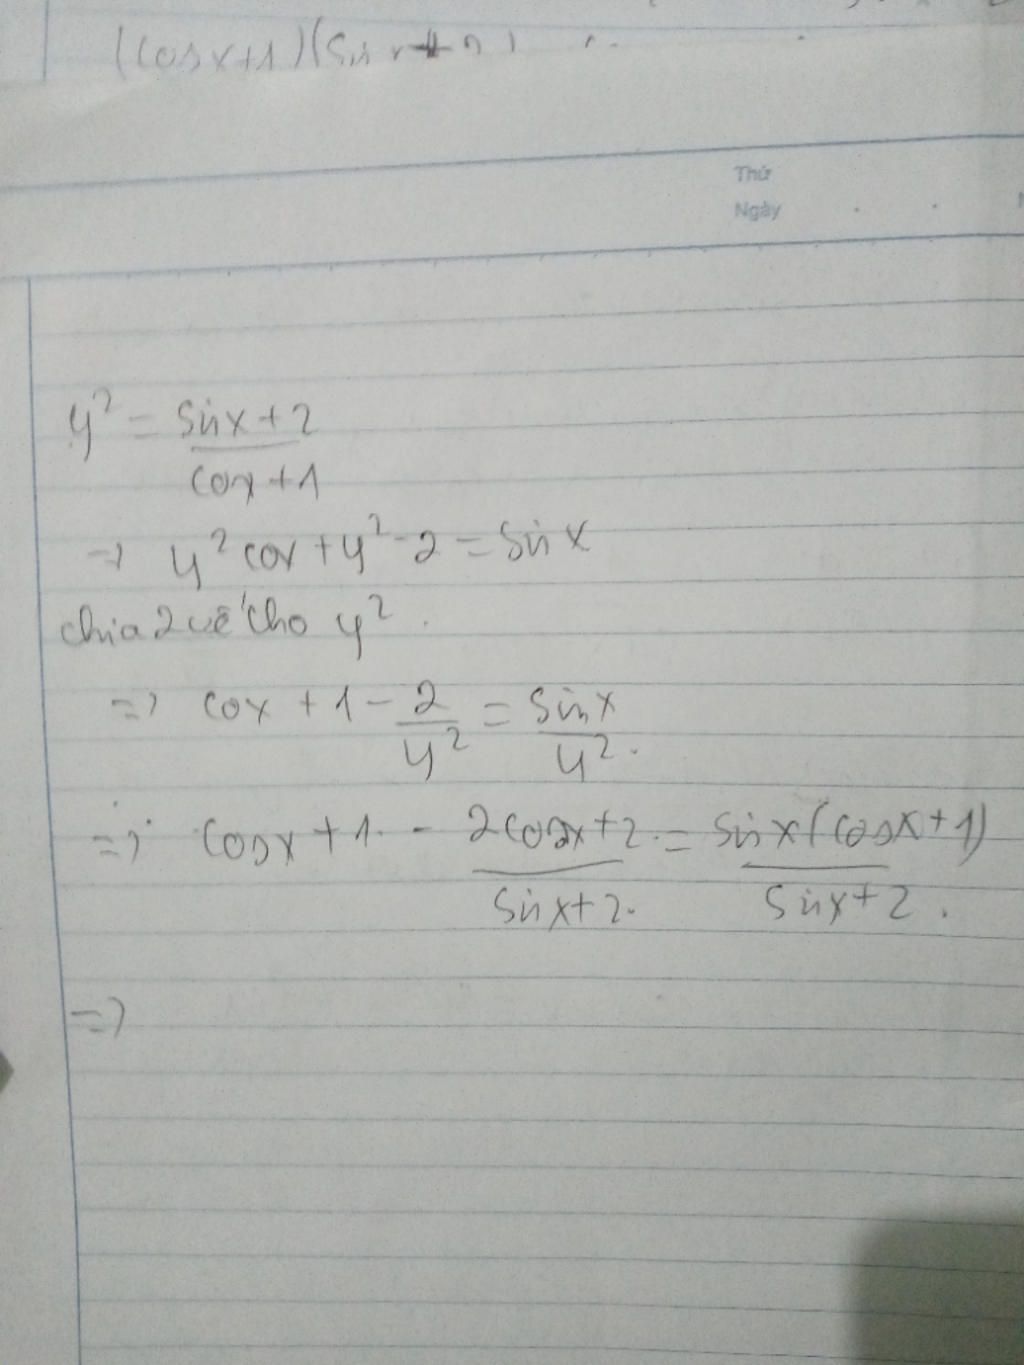 (cosx+1)(sinx+2)
Thứ
Ngày
y² = sinx+2
cox+1
=> y²cox+y²-2 = sinx
chia 2 vế cho y².
=> cox + 1 - 2/y² = sinx/y².
=> cosx + 1 - 2cosx+2 = sinx(cosx+1)
sinx+2. sinx+2.
=>